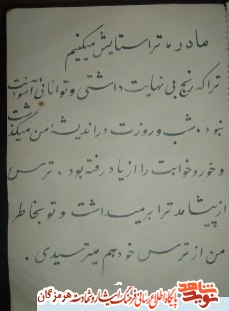 مادر ما ترا ستایش میکنیم
ترا که رنج بی نهایت داشتی و توانائی آسوده
نبود، شب و روزت در اندیشه من میگذشت
و خور و خوابت را از یاد رفته بود. ترس
از پیشامد ترا بر میداشت و تو بخاطر
من از ترس خود هم میترسیدی.
نوید شاهد
پایگاه اطلاع رسانی فرهنگ ایثار و شهادت هرمزگان